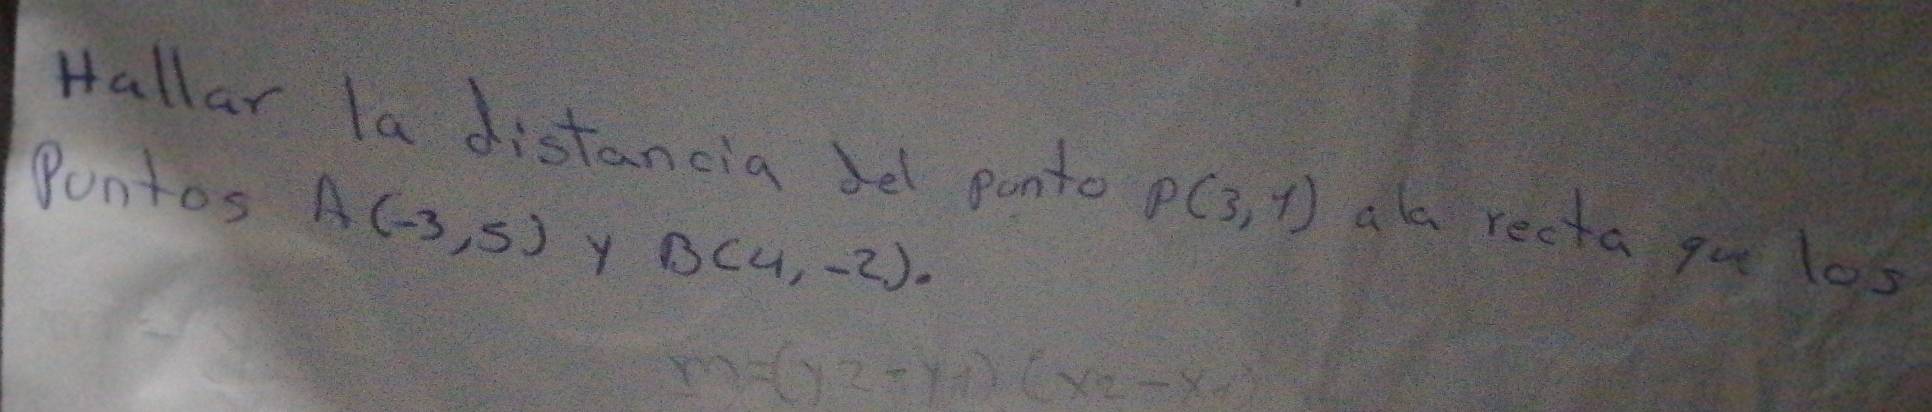 Hallar la distancia del punto P(3,1) a la recta que los
Puntos A(-3,5) y B(4,-2).
m=(y2-y1)(x2-x1)